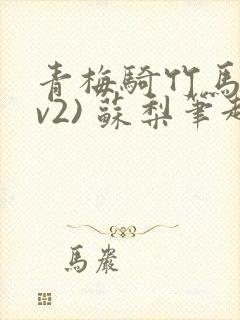 青梅騎竹馬
v2) 蘇梨筆趣
馬嚴